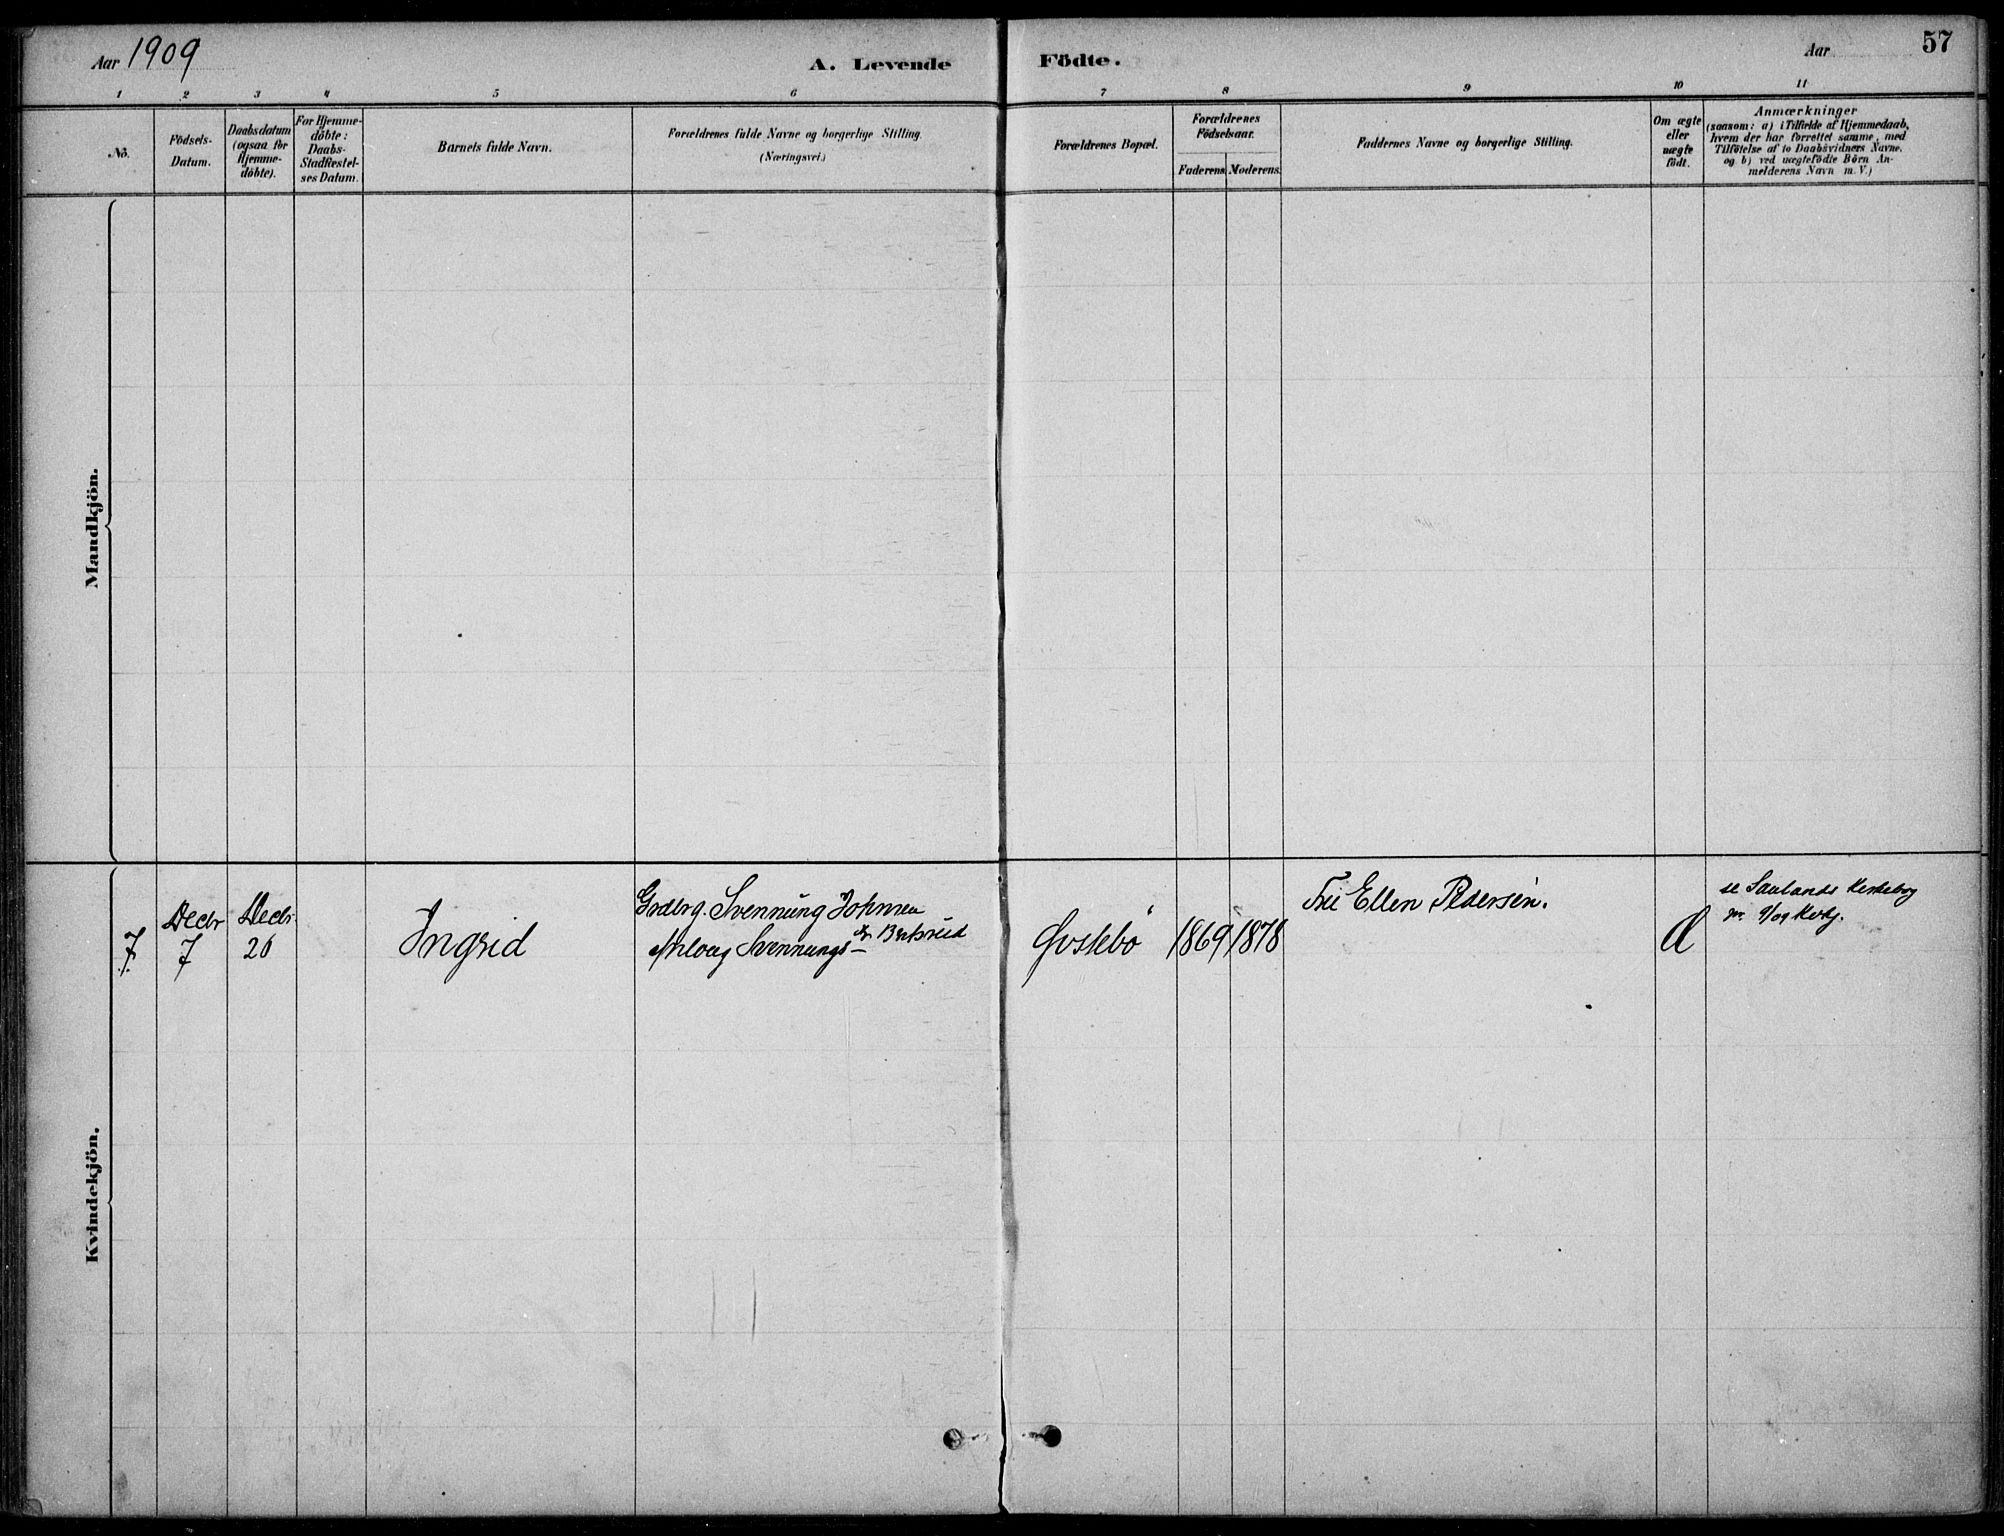 Aar 1909
A. Levende
Födte.
Aar
57
1 2 3 4 5 6 7 8 9 10 11
No.
Födsels-
Datum.
Daabsdatum
(ogsaa for
Hjemme-
döbte).
For Hjemme-
döbte:
Daabs-
Stadfæstel-
ses Datum.
Barnets fulde Navn.
Forældrenes fulde Navne og borgerlige Stilling.
(Næringsvei.)
Forældrenes Bopæl.
Forældrenes
Födselsaar.
Faderens. Moderens.
Faddernes Navne og borgerlige Stilling.
Om ægte
eller
uægte
födt.
Anmærkninger
(saasom: a) i Tilfælde af Hjemmedaab,
hvem der har forrettet samme, med
Tilföielse af to Daabsvidners Navne.
og b) ved uægtefödte Börn An-
melderens Navn m. V.)
Mandkjön.
Kvindekjön.
7.
Decbr
7
Decbr
26
Ingrid
Grdbrg. Svennung Johnsen
Svennungs-
Øvstebö
1869
1878
Ellen Pedersen.
Æ
se Saulands Kirkebog